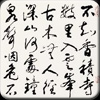 不知香積寺
數里入雲峯
古木無人徑
深山何處鐘
泉聲咽危石